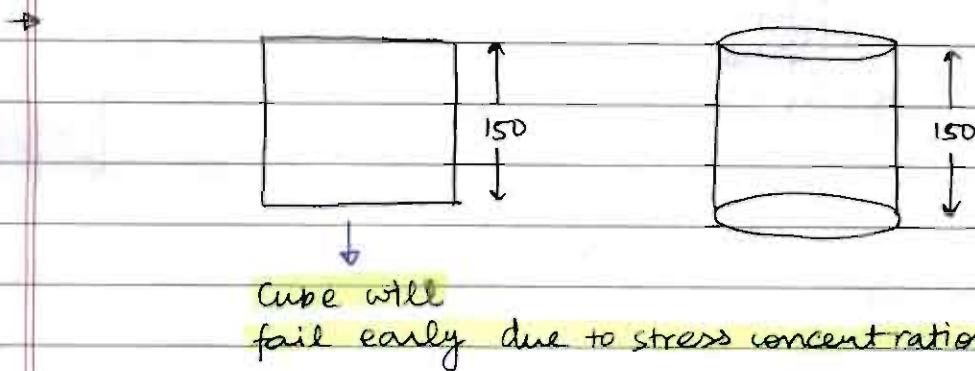 150
150
Cube will
fail early due to stress concentration